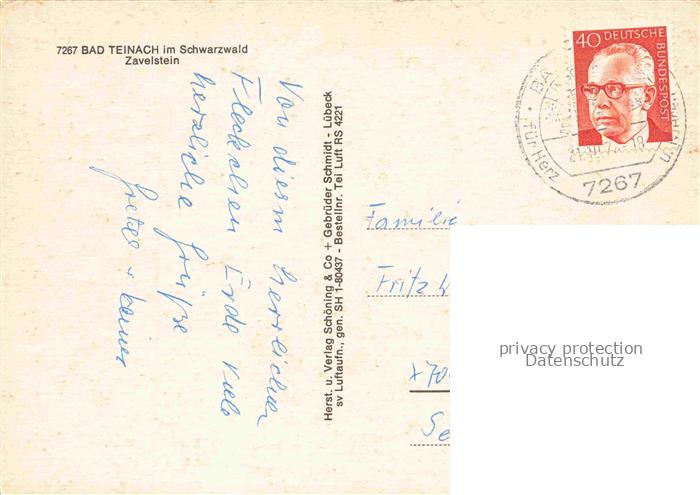 7267 BAD TEINACH im Schwarzwald
Zavelstein
Von diesem herrlichen
Fleckchen Erde viele
herzliche Grüße
Herst. u. Verlag Schöning & Co + Gebrüder Schmidt - Lübeck
sv Luftaufn., gen. SH 1-80437 - Bestellnr. Tei Luft RS 4221
40 DEUTSCHE
BUNDESPOST
für Herz
7267
Familie
Fritz
privacy protection
Datenschutz